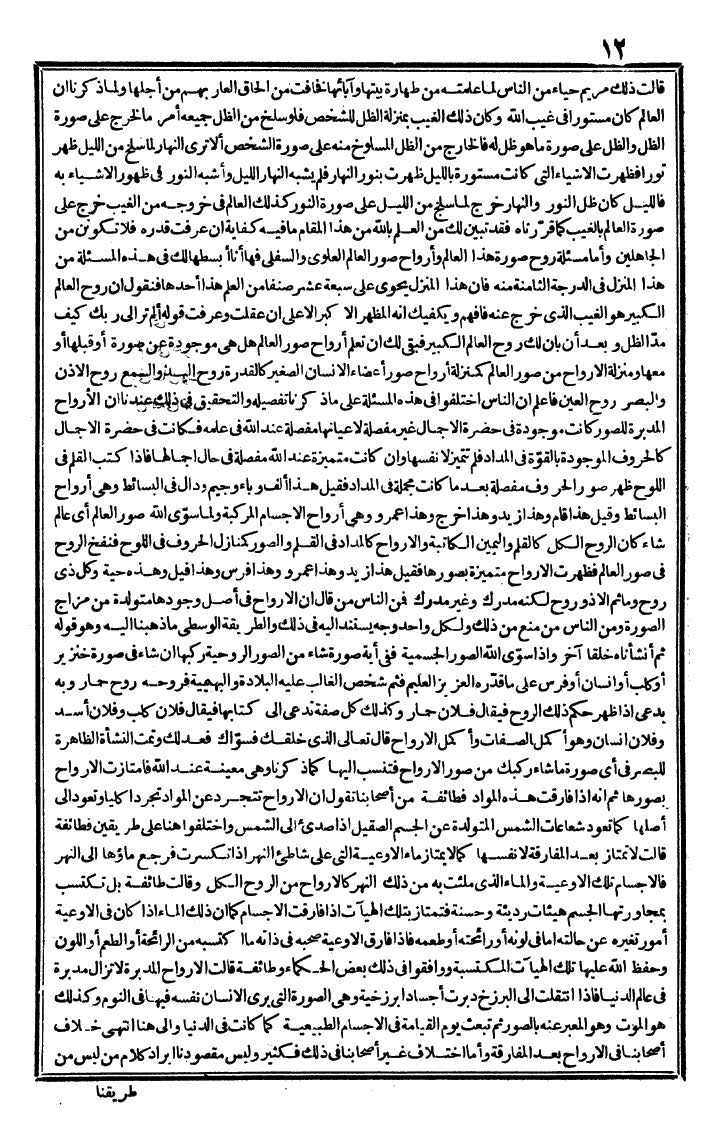 ١٢
قالت ذلك مريم حياء من الناس لما علمته من طهارة بيتها وآبائها فخافت من الحاق العار بهم من أجلها ولما ذكرنا ان
العالم كان مستورا فى غيب الله وكان ذلك الغيب بمنزلة الظل للشخص فلو سلخ من الظل جميعه أمر ما لخرج على صورة
الظل والظل على صورة ما هو ظل له فالخارج من الظل المسلوخ منه على صورة الشخص ألا ترى النهار لما سلخ من الليل ظهر
نورا فظهرت الاشياء التى كانت مستورة بالليل ظهرت بنور النهار فلم يشبه النهار الليل وأشبه النور فى ظهور الاشياء به
فالليل كان ظل النور والنهار خرج لما سلخ من الليل على صورة النور كذلك العالم فى خروجه من الغيب خرج على
صورة العالم بالغيب كما قررناه فقد تبين لك من العلم بالله من هذا المقام ما فيه كفاية ان عرفت قدره فلا تكونن من
الجاهلين وأما مسئلة روح صورة هذا العالم وأرواح صور العالم العلوى والسفلى فها أنا أبسطها لك فى هذه المسئلة من
هذا المنزل فى الدرجة الثامنة منه فان هذا المنزل يحوى على سبعة عشر صنفا من العلم هذا أحدها فنقول ان روح العالم
الكبير هو الغيب الذى خرج عنه فافهم ويكفيك انه المظهر الاكبر الاعلى ان عقلت وعرفت قوله ألم تر الى ربك كيف
مدّ الظل وبعد أن بان لك روح العالم الكبير فبقى لك ان تعلم أرواح صور العالم هل هى موجودة عن صورة أو قبلها أو
معها ومنزلة الارواح من صور العالم كمنزلة أرواح صور أعضاء الانسان الصغير كالقدرة روح اليد والسمع روح الاذن
والبصر روح العين فاعلم ان الناس اختلفوا فى هذه المسئلة على ما ذكرنا تفصيله والتحقيق فى ذلك عندنا ان الأرواح
المدبرة للصور كانت موجودة فى حضرة الاجمال غير مفصلة لاعيانها مفصلة عند الله فى علمه فكانت فى حضرة الاجمال
كالحروف الموجودة بالقوّة فى المداد فلم تتميز لانفسها وان كانت متميزة عند الله مفصلة فى حال اجمالها فاذا كتب القلم فى
اللوح ظهر صور الحروف مفصلة بعد ما كانت مجملة فى المداد فقيل هذا ألف وباء وجيم ودال فى البسائط وهى أرواح
البسائط وقيل هذا قام وهذا زيد وهذا خرج وهذا عمرو وهى أرواح الاجسام المركبة ولما سوّى الله صور العالم أى عالم
شاء كان الروح الكل كالقلم واليمين الكاتبة والارواح كالمداد فى القلم والصور كمنازل الحروف فى اللوح فنفخ الروح
فى صور العالم فظهرت الارواح متميزة بصورها فقيل هذا زيد وهذا عمرو وهذا فرس وهذا فيل وهذه حية وكل ذى
روح وما ثم الا ذو روح لكنه مدرك وغير مدرك فمن الناس من قال ان الارواح فى أصل وجودها متولدة من مزاج
الصورة ومن الناس من منع من ذلك ولكل واحد وجه يستند اليه فى ذلك والطريقة الوسطى ما ذهبنا اليه وهو قوله
ثم أنشأناه خلقا آخر واذا سوّى الله الصور الجسمية ففى أية صورة شاء من الصور الروحية ركبها ان شاء فى صورة خنزير
أو كلب أو انسان أو فرس على ما قدّره العزيز العليم فثم شخص الغالب عليه البلادة والبهيمية فروحه روح حمار وبه
يدعى اذا ظهر حكم ذلك الروح فيقال فلان حمار وكذلك كل صفة تدعى الى كتابها فيقال فلان كلب وفلان أسد
وفلان انسان وهو أكمل الصفات وأكمل الارواح قال تعالى الذى خلقك فسوّاك فعدلك وتمت النشأة الظاهرة
للبصر فى أى صورة ما شاء ركبك من صور الارواح فتنسب اليها كما ذكرنا وهى معينة عند الله فامتازت الارواح
بصورها ثم انه اذا فارقت هذه المواد فطائفة من أصحابنا تقول ان الارواح تتجرد عن المواد تجردا كليا وتعود الى
أصلها كما تعود شعاعات الشمس المتولدة عن الجسم الصقيل اذا صدئ الى الشمس واختلفوا هنا على طريقين فطائفة
قالت لا تمتاز بعد المفارقة لانفسها كما لا يمتاز ماء الاوعية التى على شاطئ النهر اذا تكسرت فرجع ماؤها الى النهر
فالاجسام تلك الاوعية والماء الذى ملئت به من ذلك النهر كالارواح من الروح الكل وقالت طائفة بل تكتسب
بمجاورتها الجسم هيئات رديئة وحسنة فتمتاز بتلك الهيآت اذا فارقت الاجسام كما ان ذلك الماء اذا كان فى الاوعية
أمور تغيره عن حالته اما فى لونه أو رائحته أو طعمه فاذا فارق الاوعية صحبه فى ذاته ما اكتسبه من الرائحة أو الطعم أو اللون
وحفظ الله عليها تلك الهيآت المكتسبة ووافقوا فى ذلك بعض الحكماء وطائفة قالت الارواح المدبرة لا تزال مدبرة
فى عالم الدنيا فاذا انتقلت الى البرزخ دبرت أجسادا برزخية وهى الصورة التى يرى الانسان نفسه فيها فى النوم وكذلك
هو الموت وهو المعبر عنه بالصور ثم تبعث يوم القيامة فى الاجسام الطبيعية كما كانت فى الدنيا والى هنا انتهى خلاف
أصحابنا فى الارواح بعد المفارقة وأما اختلاف غير أصحابنا فى ذلك فكثير وليس مقصودنا ايراد كلام من ليس من
طريقنا